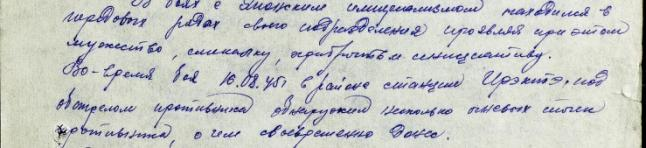 В боях с Японским империализмом находился в
передовых рядах своего подразделения проявляя при этом
мужество, смекалку, храбрость и инициативу.
Во-время боя 16.08.45г. в районе станции под
обстрелом противника обнаружил несколько огневых точек
противника, о чем своевременно донес.